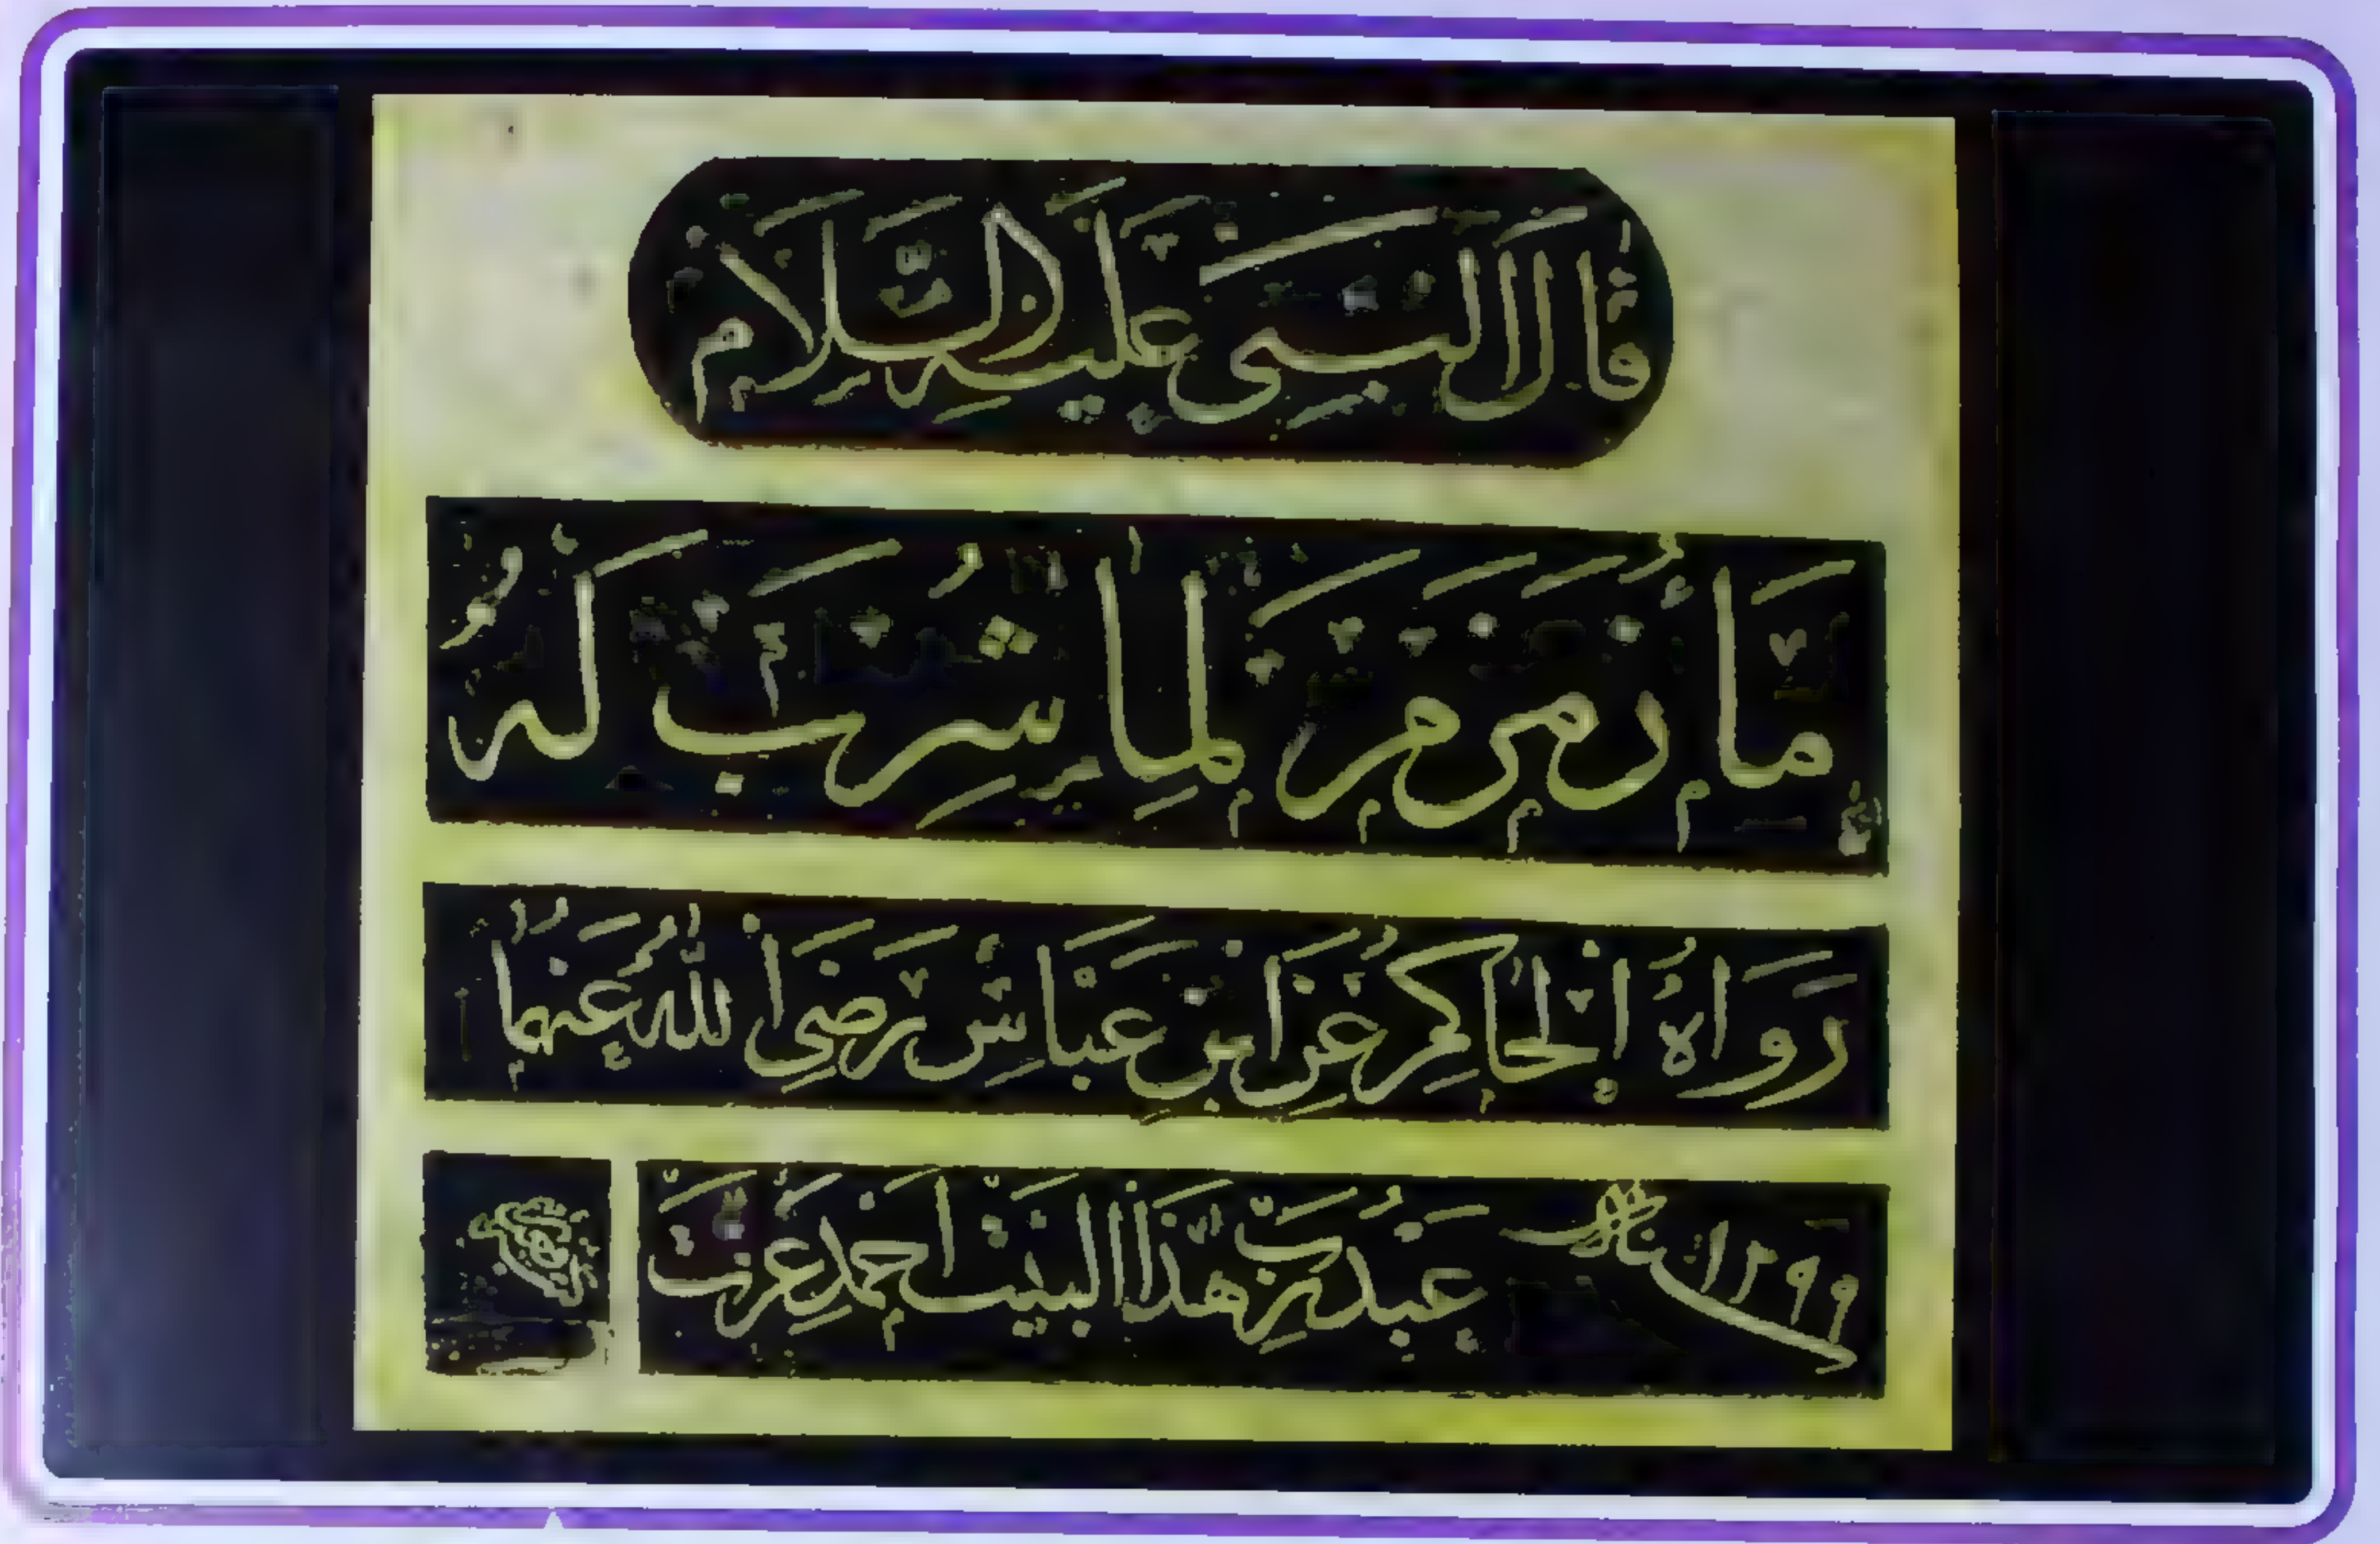 قَالَ النَّبِيُّ عَلَيْهِ السَّلَامُ
مَاءُ زَمْزَمَ لِمَا شُرِبَ لَهُ
رَوَاهُ الْحَاكِمُ عَنِ ابْنِ عَبَّاسٍ رَضِيَ اللهُ عَنْهُمَا
عَبْدُ رَبِّ هَذَا الْبَيْتِ أَحْمَد عِزَّت سنة ١٢٩٩